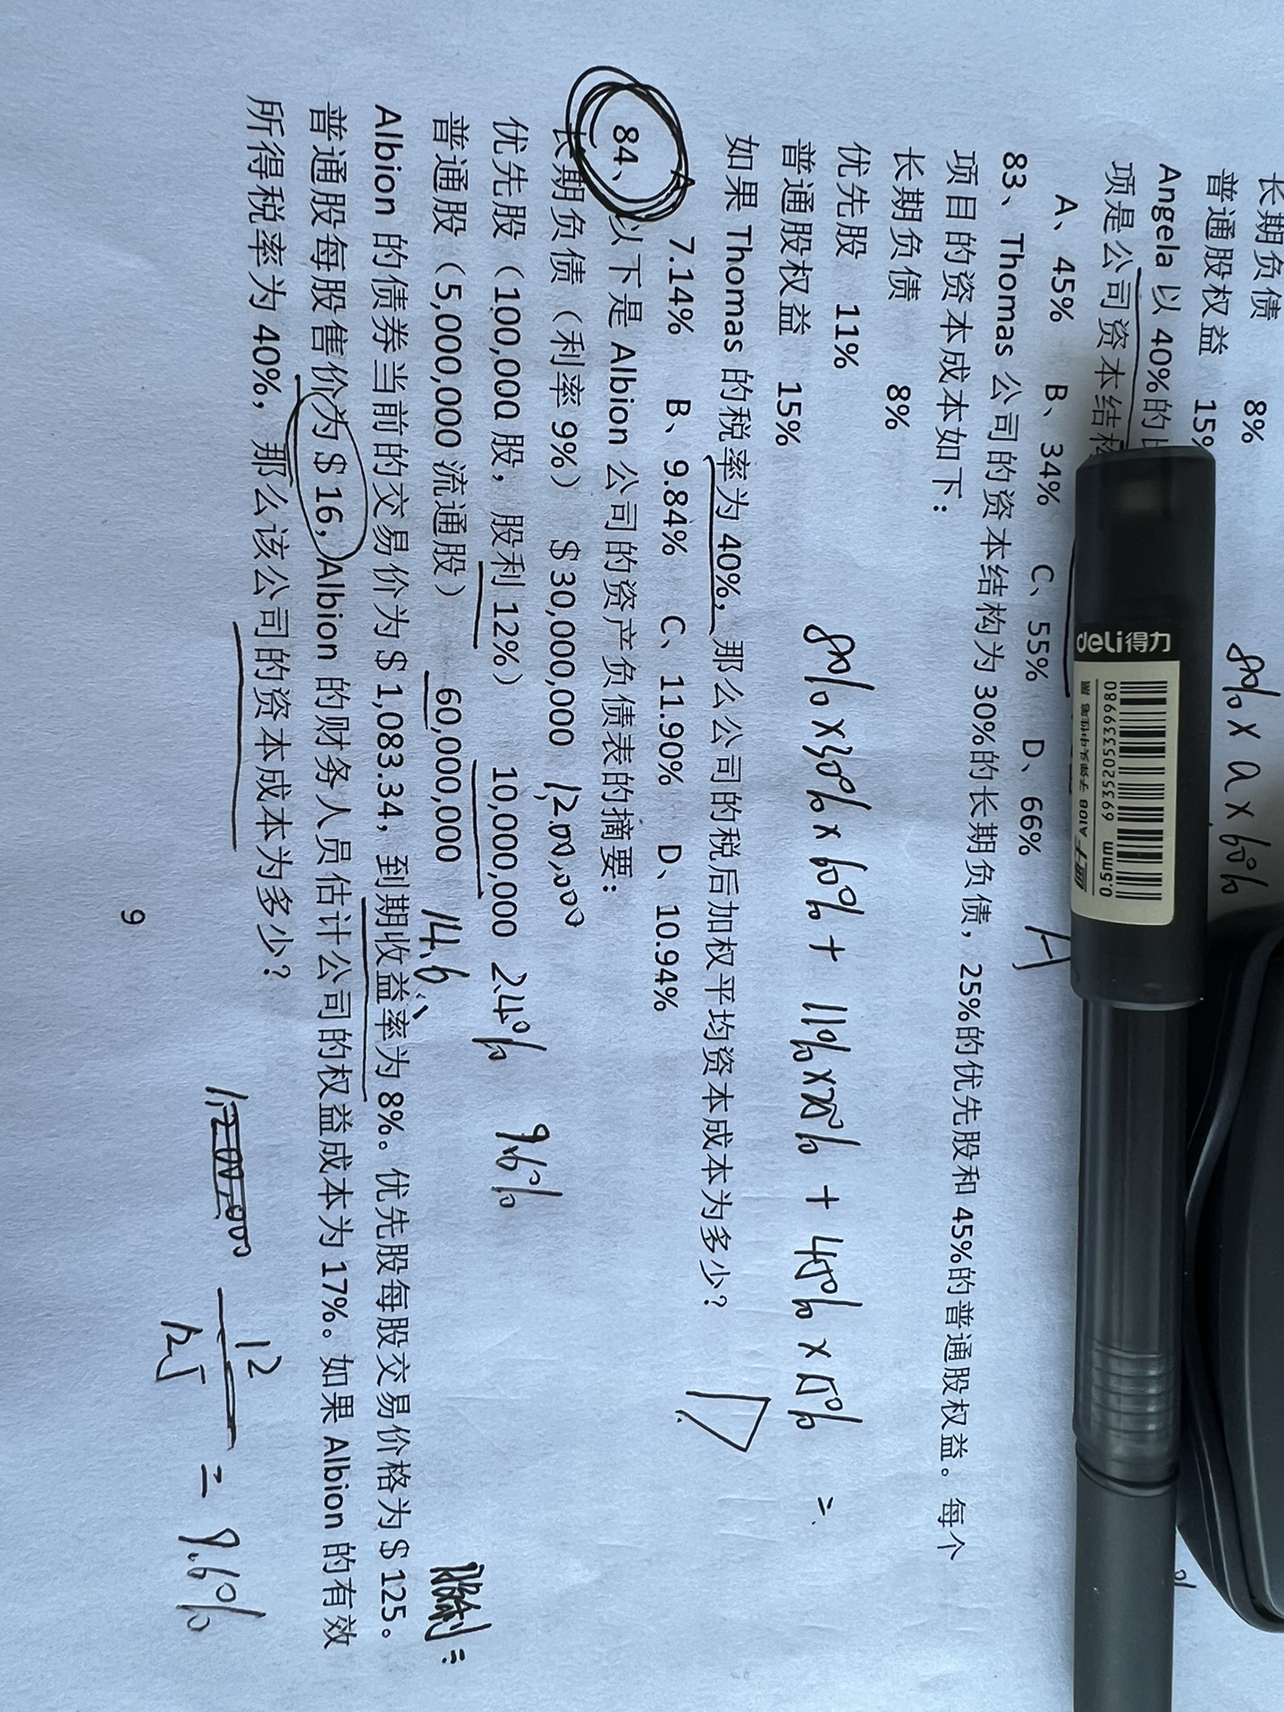 长期负债 8%
普通股权益 15%
Angela 以 40%的
项是公司资本结构
8% × a × 60%
A、45% B、34% C、55% D、66%
A
83、Thomas 公司的资本结构为 30%的长期负债，25%的优先股和 45%的普通股权益。每个
项目的资本成本如下：
长期负债 8%
优先股 11%
普通股权益 15%
8% × 30% × 60% + 11% × 25% + 45% × 15% =
如果 Thomas 的税率为 40%，那么公司的税后加权平均资本成本为多少？
A、7.14% B、9.84% C、11.90% D、10.94%
D
84、以下是 Albion 公司的资产负债表的摘要：
长期负债（利率 9%） $30,000,000 1,200,000
优先股（100,000 股，股利 12%） 10,000,000 2.4% 9.6%
普通股（5,000,000 流通股） 60,000,000 14.6
股利=
Albion 的债券当前的交易价为$1,083.34，到期收益率为 8%。优先股每股交易价格为$125。
普通股每股售价为$16，Albion 的财务人员估计公司的权益成本为 17%。如果 Albion 的有效
所得税率为 40%，那么该公司的资本成本为多少？
12/125 = 9.6%
9
deli得力
0.5mm
A108
6935205339980